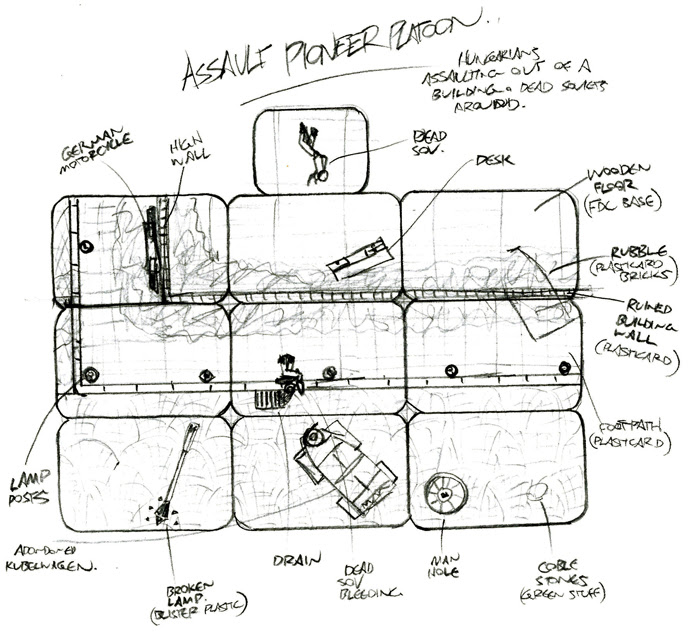 ASSAULT PIONEER PLATOON..
HUNGARIANS
ASSAULTING OUT OF A
BUILDING. DEAD SOVIETS
AROUND.
GERMAN
MOTORCYCLE
HIGH
WALL
DEAD
SOV.
DESK
WOODEN
FLOOR
(FDC BASE)
RUBBLE
(PLASTICARD
BRICKS)
RUINED
BUILDING
WALL
(PLASTICARD)
FOOTPATH
(PLASTICARD)
LAMP
POSTS
ABONDONED
KUBELWAGEN.
BROKEN
LAMP.
(BLISTER PLASTIC)
DRAIN
DEAD
SOV
BLEEDING.
MAN
HOLE
COBLE
STONES
(GREEN STUFF)